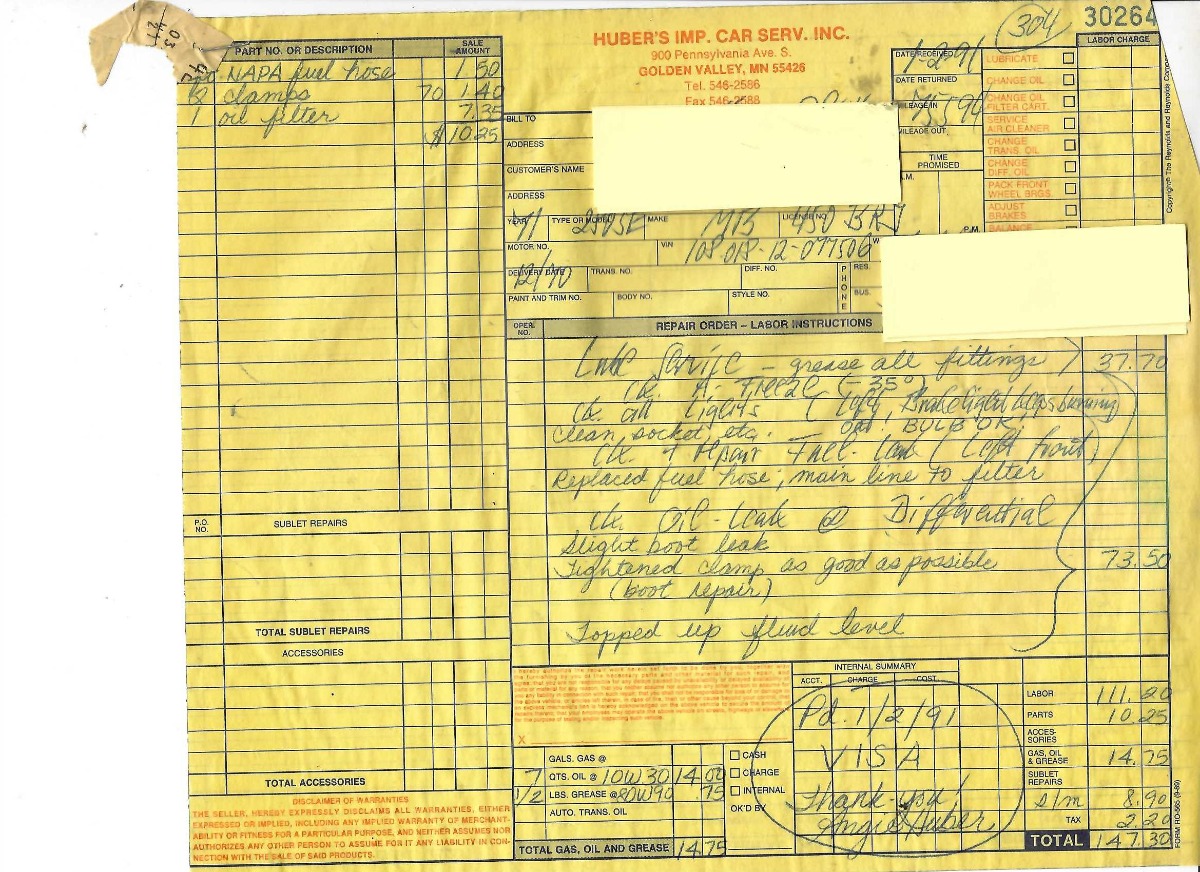 304
30264
HUBER'S IMP. CAR SERV. INC.
900 Pennsylvania Ave. S.
GOLDEN VALLEY, MN 55426
Tel. 546-2586
Fax 546-2588
PART NO. OR DESCRIPTION SALE AMOUNT
NAPA fuel hose 1.50
2 clamps 70 1.40
1 oil filter 7.35
$10.25
DATE RECEIVED 1-2-91
DATE RETURNED
MILEAGE IN 75594
MILEAGE OUT
TIME PROMISED
A.M.
P.M.
LABOR CHARGE
LUBRICATE
CHANGE OIL
CHANGE OIL FILTER CART.
SERVICE AIR CLEANER
CHANGE TRANS. OIL
CHANGE DIFF. OIL
PACK FRONT WHEEL BRGS.
ADJUST BRAKES
BALANCE
BILL TO
ADDRESS
CUSTOMER'S NAME
ADDRESS
YEAR 71 TYPE OR MODEL 280SE MAKE MB LICENSE NO. 450 BRJ
MOTOR NO. VIN 108 018-12-077506
DELIVERY DATE 12/70 TRANS. NO. DIFF. NO. PHONE RES.
PAINT AND TRIM NO. BODY NO. STYLE NO. BUS.
OPER. NO. REPAIR ORDER – LABOR INSTRUCTIONS
Lube Service - grease all fittings 37.70
Ck. A-Freeze (-35°)
Ck. all lights (Left, Brakelight keeps burning
clean socket, etc. - out! BULB OK!
Ck. & repair Fuel-Leak (Left front)
Replaced fuel hose; main line to filter
Ck. Oil-Leak @ Differential
Slight boot leak
Tightened clamp as good as possible 73.50
(boot repair)
Topped up fluid level
P.O. NO. SUBLET REPAIRS
TOTAL SUBLET REPAIRS
ACCESSORIES
TOTAL ACCESSORIES
DISCLAIMER OF WARRANTIES
THE SELLER, HEREBY EXPRESSLY DISCLAIMS ALL WARRANTIES, EITHER
EXPRESSED OR IMPLIED, INCLUDING ANY IMPLIED WARRANTY OF MERCHANT-
ABILITY OR FITNESS FOR A PARTICULAR PURPOSE, AND NEITHER ASSUMES NOR
AUTHORIZES ANY OTHER PERSON TO ASSUME FOR IT ANY LIABILITY IN CON-
NECTION WITH THE SALE OF SAID PRODUCTS.
X
GALS. GAS @
7 QTS. OIL @ 10W30 14.00
1/2 LBS. GREASE @ 80W90 .75
AUTO. TRANS. OIL
TOTAL GAS, OIL AND GREASE 14.75
CASH
CHARGE
INTERNAL
OK'D BY
INTERNAL SUMMARY
ACCT. CHARGE COST
Pd. 1/2/91
VISA
Thank-you,
Angie Huber
LABOR 111.20
PARTS 10.25
ACCES-SORIES
GAS, OIL & GREASE 14.75
SUBLET REPAIRS
s/m 8.90
TAX 2.20
TOTAL 147.30
FORM RO-665 (9-89)